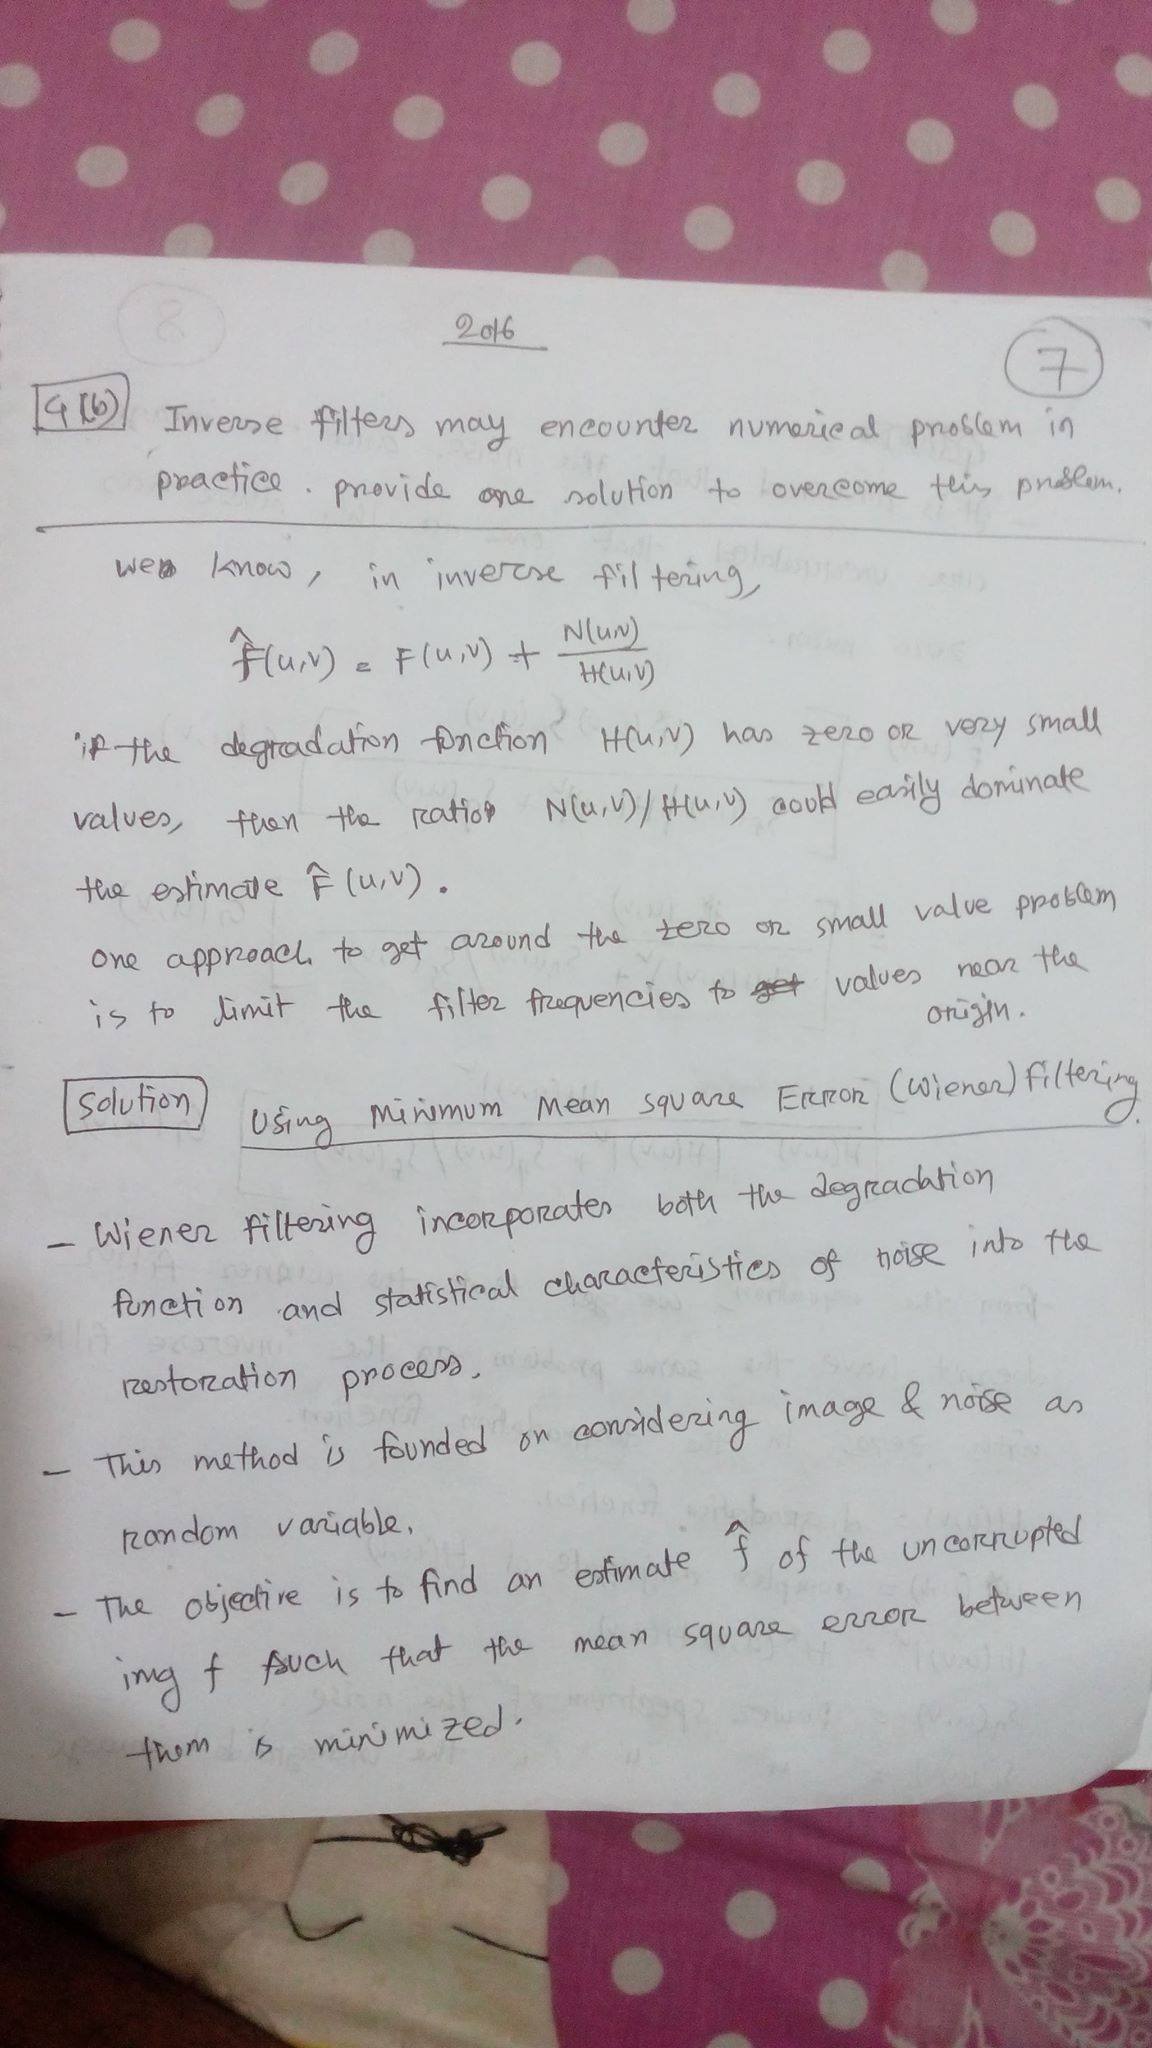 2016
7
4(b) Inverse filters may encounter numerical problem in
practice. provide one solution to overcome this problem.
we know, in inverse filtering,
F̂(u,v) = F(u,v) + N(u,v)/H(u,v)
if the degradation function H(u,v) has zero or very small
values, then the ratio N(u,v)/H(u,v) could easily dominate
the estimate F̂(u,v).
one approach to get around the zero or small value problem
is to limit the filter frequencies to get values near the
origin.
Solution Using Minimum Mean square Error (wiener) filtering.
- Wiener filtering incorporates both the degradation
function and statistical characteristics of noise into the
restoration process.
- This method is founded on considering image & noise as
random variable.
- The objective is to find an estimate f̂ of the uncorrupted
img f such that the mean square error between
them is minimized.